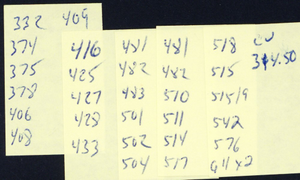 332 409
374 416 481 481 518
375 425 482 482 515 314.50
378 427 483 510 515/9
406 428 501 511 542
408 433 502 514 576
504 517 911 x2